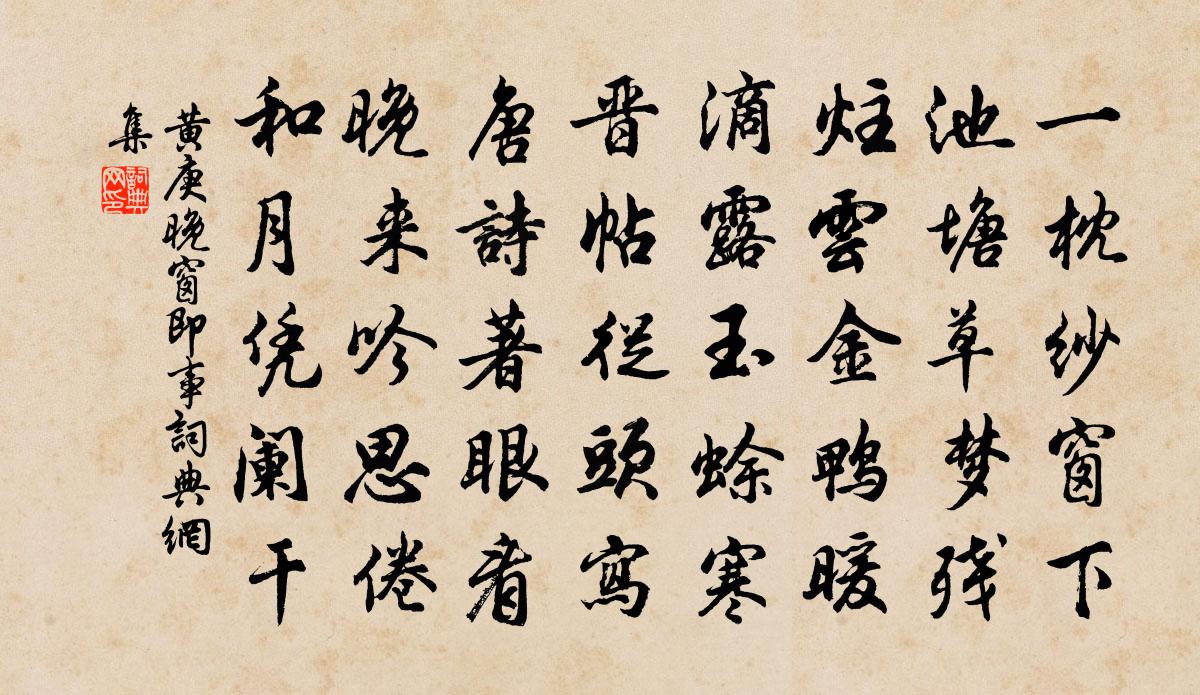 一枕纱窗下
池塘草梦残
炷雲金鸭暖
滴露玉蜍寒
晋帖從頭寫
唐詩著眼看
晚来吟思倦
和月凭阑干
黄庚晚窗即事詞典網
集
詞典
网印